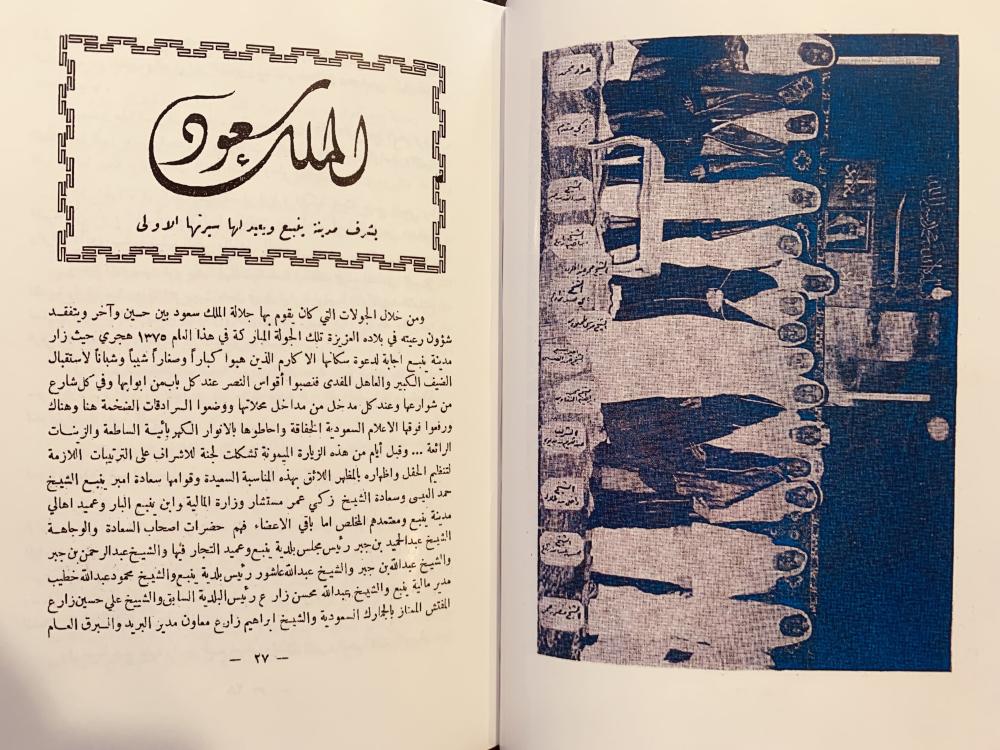 الملك سعود
يشرف مدينة ينبع ويعيد لها سيرتها الاولى
ومن خلال الجولات التي كان يقوم بها جلالة الملك سعود بين حسين وآخر ويتفقد
شؤون رعيته في بلاده العزيزة تلك الجولة المباركة في هذا العام ١٣٧٥ هجري حيث زار
مدينة ينبع اجابة لدعوة سكانها الاكارم الذين هبوا كباراً وصغاراً شيباً وشباناً لاستقبال
الضيف الكبير والعاهل المفدى فنصبوا أقواس النصر عند كل باب من ابوابها وفي كل شارع
من شوارعها وعند كل مدخل من مداخل محلاتها ووضعوا السرادقات الضخمة هنا وهناك
ورفعوا فوقها الاعلام السعودية الخفاقة واحاطوها بالانوار الكهربائية الساطعة والزينات
الرائعة ... وقبل أيام من هذه الزيارة الميمونة تشكلت لجنة للاشراف على الترتيبات اللازمة
لتنظيم الحفل واظهاره بالمظهر اللائق بهذه المناسبة السعيدة وقوامها سعادة امير ينبع الشيخ
حمد العيسى وسعادة الشيخ زكي عمر مستشار وزارة المالية وابن ينبع البار وعميد اهالي
مدينة ينبع ومعتمدهم المخلص اما باقي الاعضاء فهم حضرات اصحاب السعادة والوجاهة
الشيخ عبدالحميد بن جبر رئيس مجلس بلدية ينبع وعميد التجار فيها والشيخ عبدالرحمن بن جبر
والشيخ عبدالله بن جبر والشيخ عبدالله عاشور رئيس بلدية ينبع والشيخ محمود عبدالله خطيب
مدير مالية ينبع والشيخ عبدالله محسن زارع رئيس البلدية السابق والشيخ علي حسين زارع
المفتش الممتاز بالجمارك السعودية والشيخ ابراهيم زارع معاون مدير البريد والبرق العام
— ٢٧ —